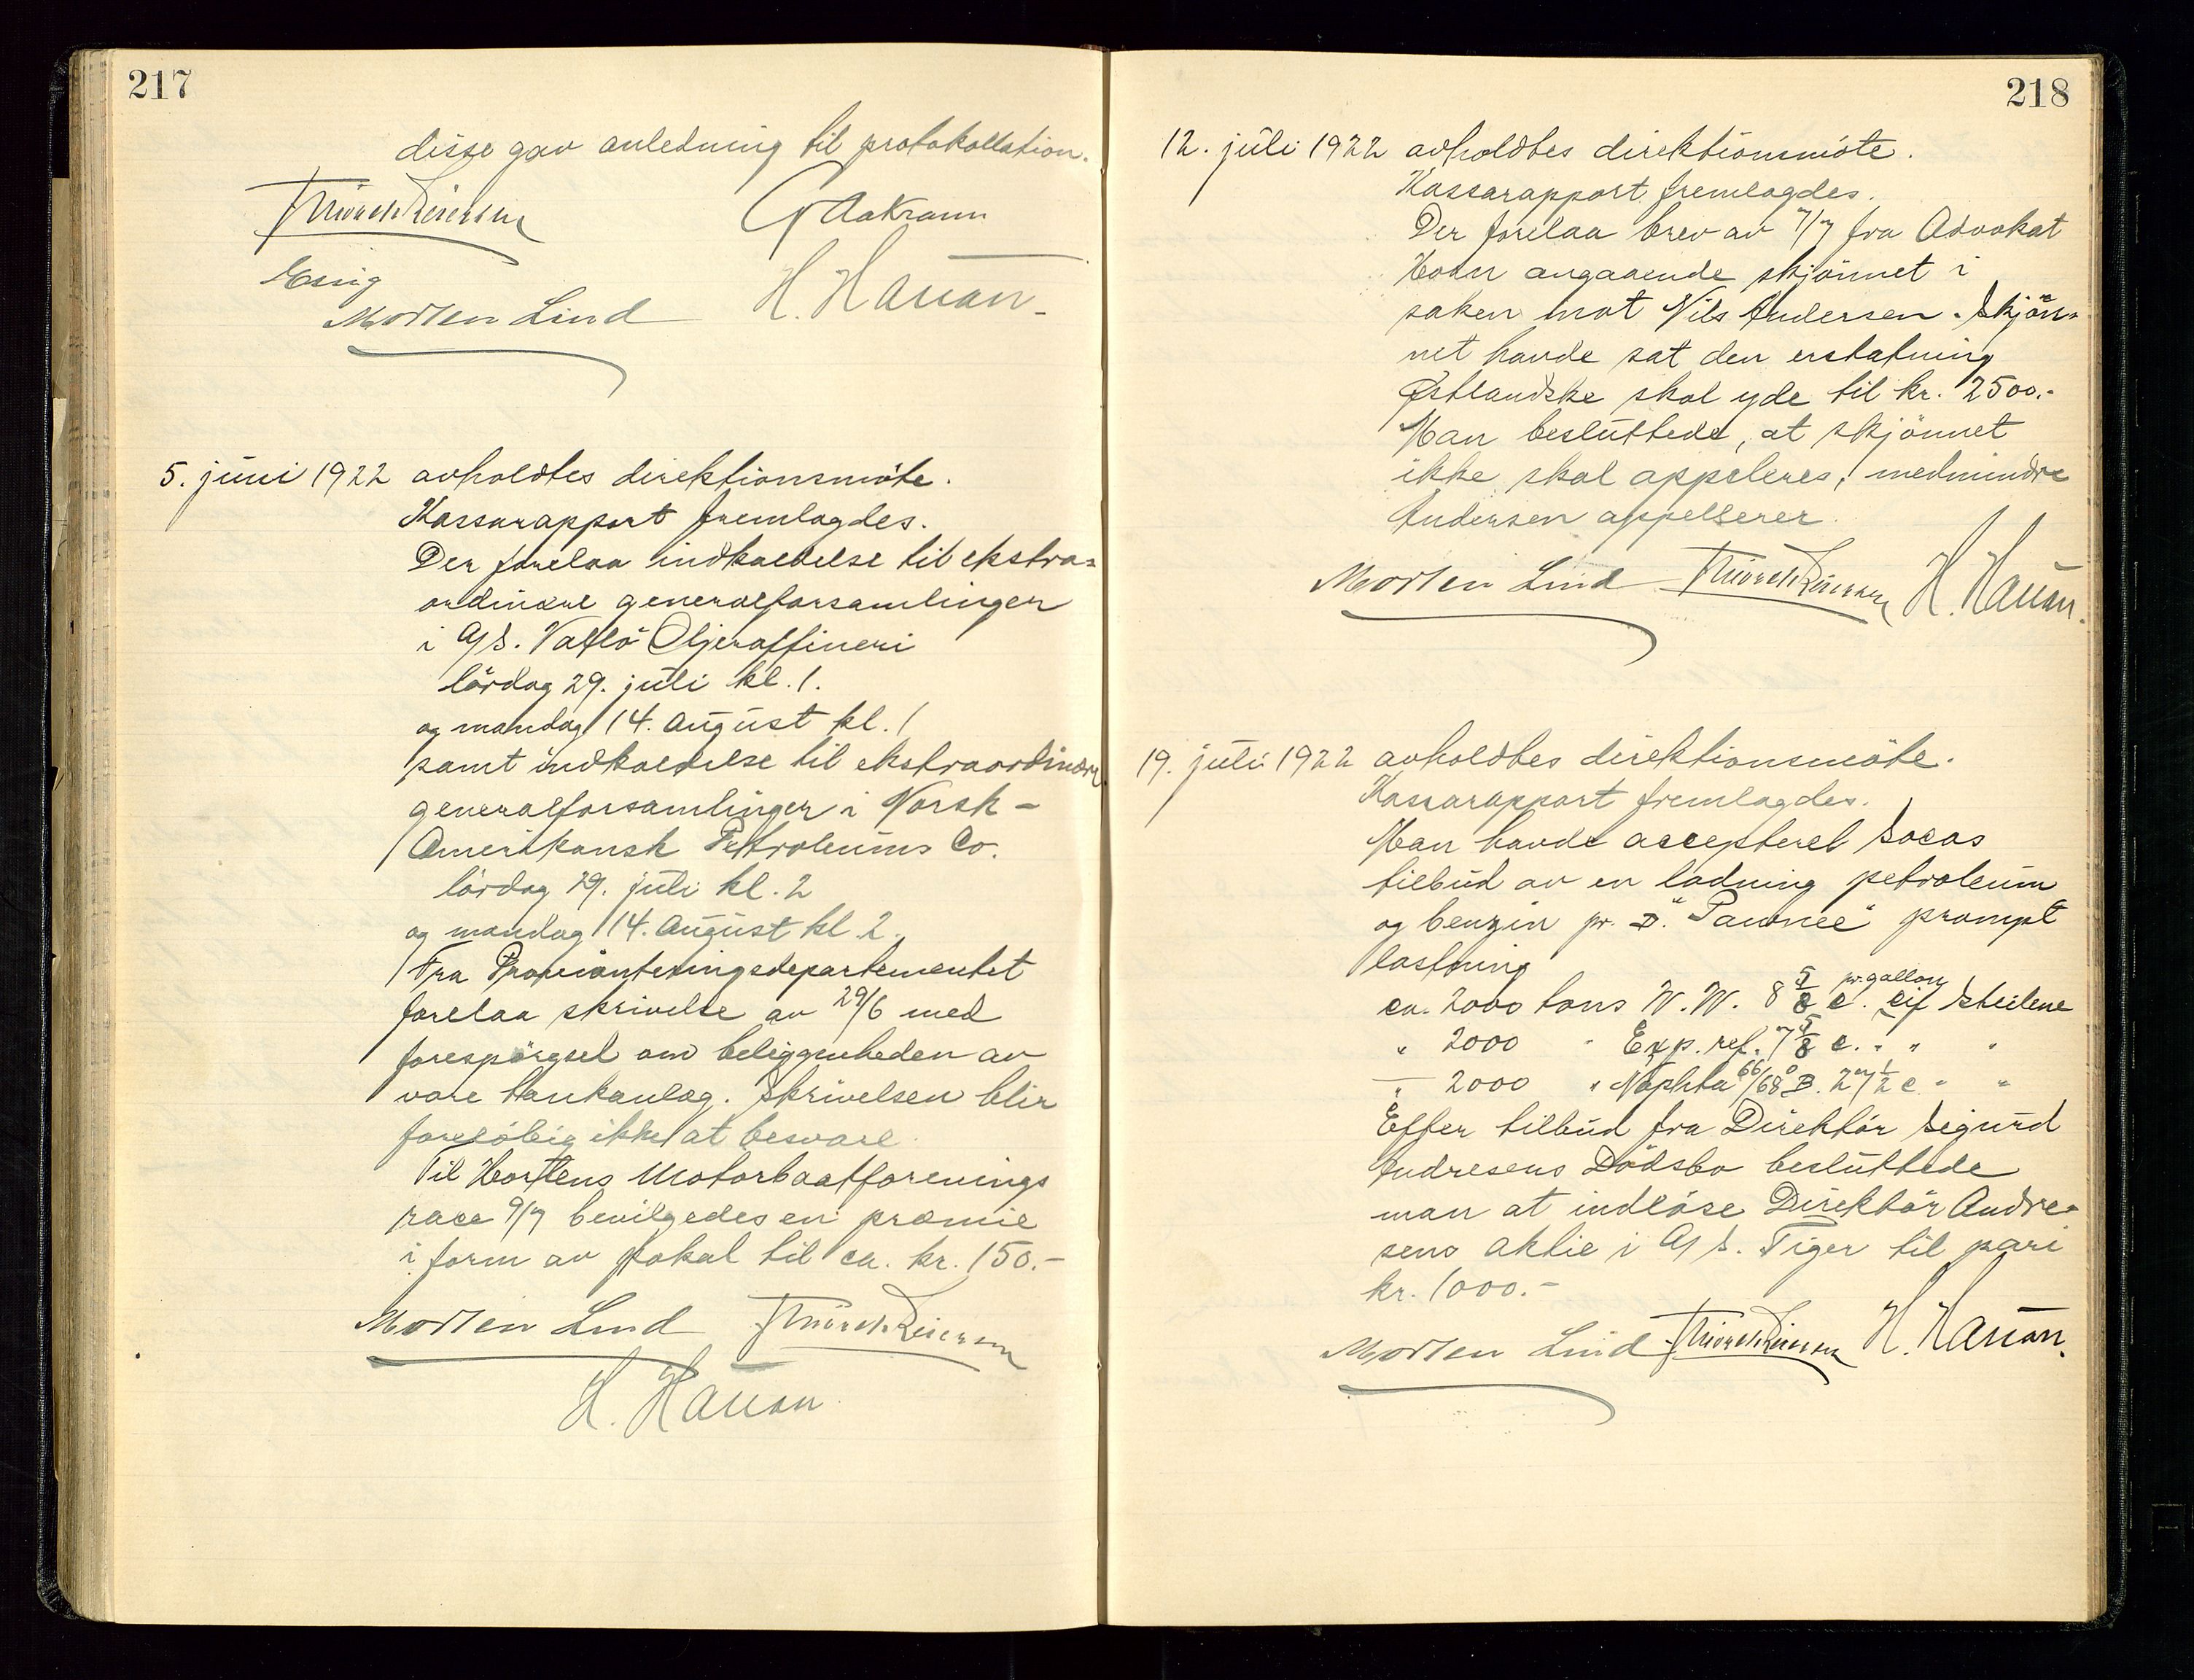 217
disse gav anledning til protokollation.
G Aakrann
Essig
Morten Lind H. Hauan
5. juni 1922 avholdtes direktionsmöte.
Kassarapport fremlagdes.
Der forelaa indkaldelse til ekstra=
ordinære generalforsamlinger
i A/S. Vallö Oljeraffineri
lördag 29. juli kl. 1.
og mandag 14. august kl. 1
samt indkaldelse til ekstraordinære
generalforsamlinger i Norsk-
Amerikansk Petroleums Co.
lördag 29. juli kl. 2
og mandag 14. august kl 2.
Fra Provianteringsdepartementet
forelaa skrivelse av 29/6 med
forespörgsel om beliggenheden av
vore tankanlæg. Skrivelsen blir
forelöbig ikke at besvare.
Til Hortens Motorbaatforenings
race 9/7 bevilgedes en præmie
i form av pokal til ca. kr. 150.-
Morten Lind
H. Hauan
218
12. juli 1922 avholdtes direktionsmöte.
Kassarapport fremlagdes.
Der forelaa brev av 7/7 fra Advokat
angaaende skjönnet i
saken mot Nils Andersen. Skjön=
net havde sat den erstatning
Østlandske skal yde til kr. 2500.-
Man besluttede, at skjönnet
ikke skal appeleres, medmindre
Andersen appellerer.
Morten Lind H. Hauan.
19. juli 1922 avholdtes direktionsmöte.
Kassarapport fremlagdes.
Man havde accepteret Socos
tilbud av en ladning petroleum
og benzin pr. D. "Pawnee" prompt
lastning
ca. 2000 tons W.W. 8 5/8 c. pr. gallon cif Steilene
" 2000 " Exp. ref. 7 5/8 c. " " "
" 2000 " Naphta 66/68° B. 27 1/2 c " "
Efter tilbud fra Direktör Sigurd
Andresens Dödsbo besluttede
man at indlöse Direktör Andre=
sens aktie i A/S. Tiger til pari
kr. 1000.-
Morten Lind H. Hauan.